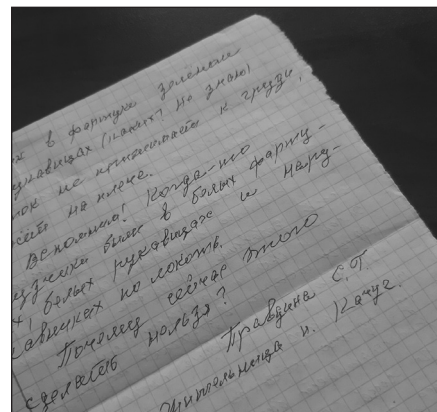 х в фартуке зелёном
рукавицах (каких? не знаю)
не прижимать к груди,
на плече.
Вспомнил! Когда-то
грузчики были в белых фарту-
х, белых рукавицах и нару-
кавниках по локоть.
Почему сейчас этого
сделать нельзя?
Правдина С.П.
Жительница п. Качуг.